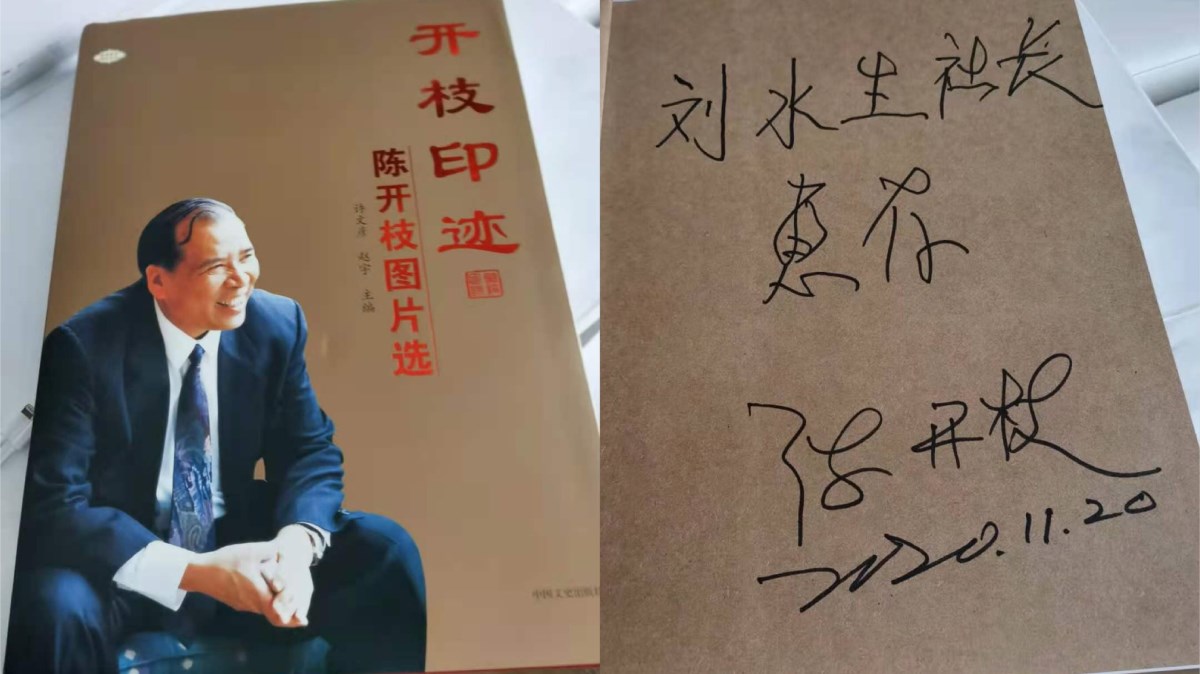 开枝印迹
陈开枝图片选
许文彦 赵宇 主编
中国文史出版社
刘水生社长
惠存
陈开枝
2020.11.20